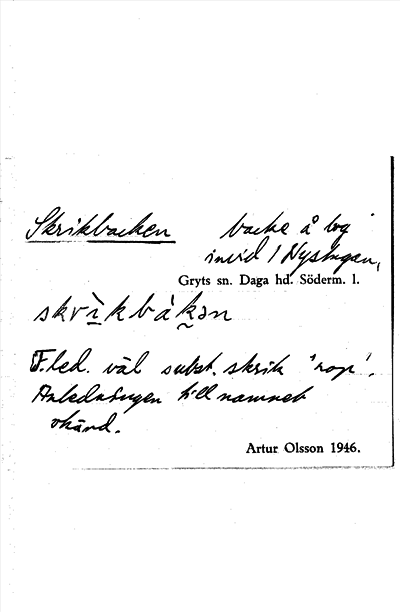 Skrikbacken backe å väg
invid / Nystugan,
Gryts sn. Daga hd. Söderm. l.
skrìkbákən
F.led. väl subst. skrik 'rop'.
Anledningen till namnet
okänd.
Artur Olsson 1946.